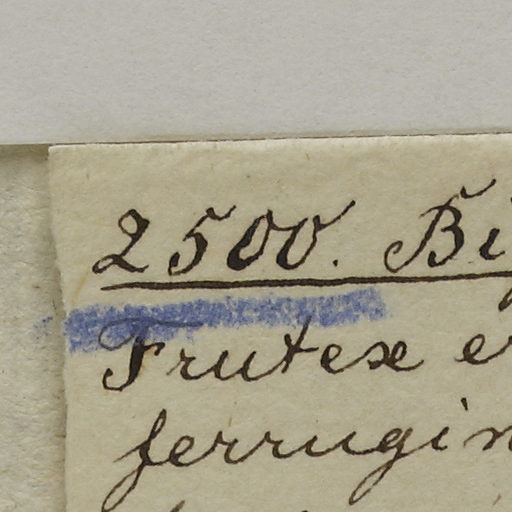 2500. Bi
Frutex e
ferrugin